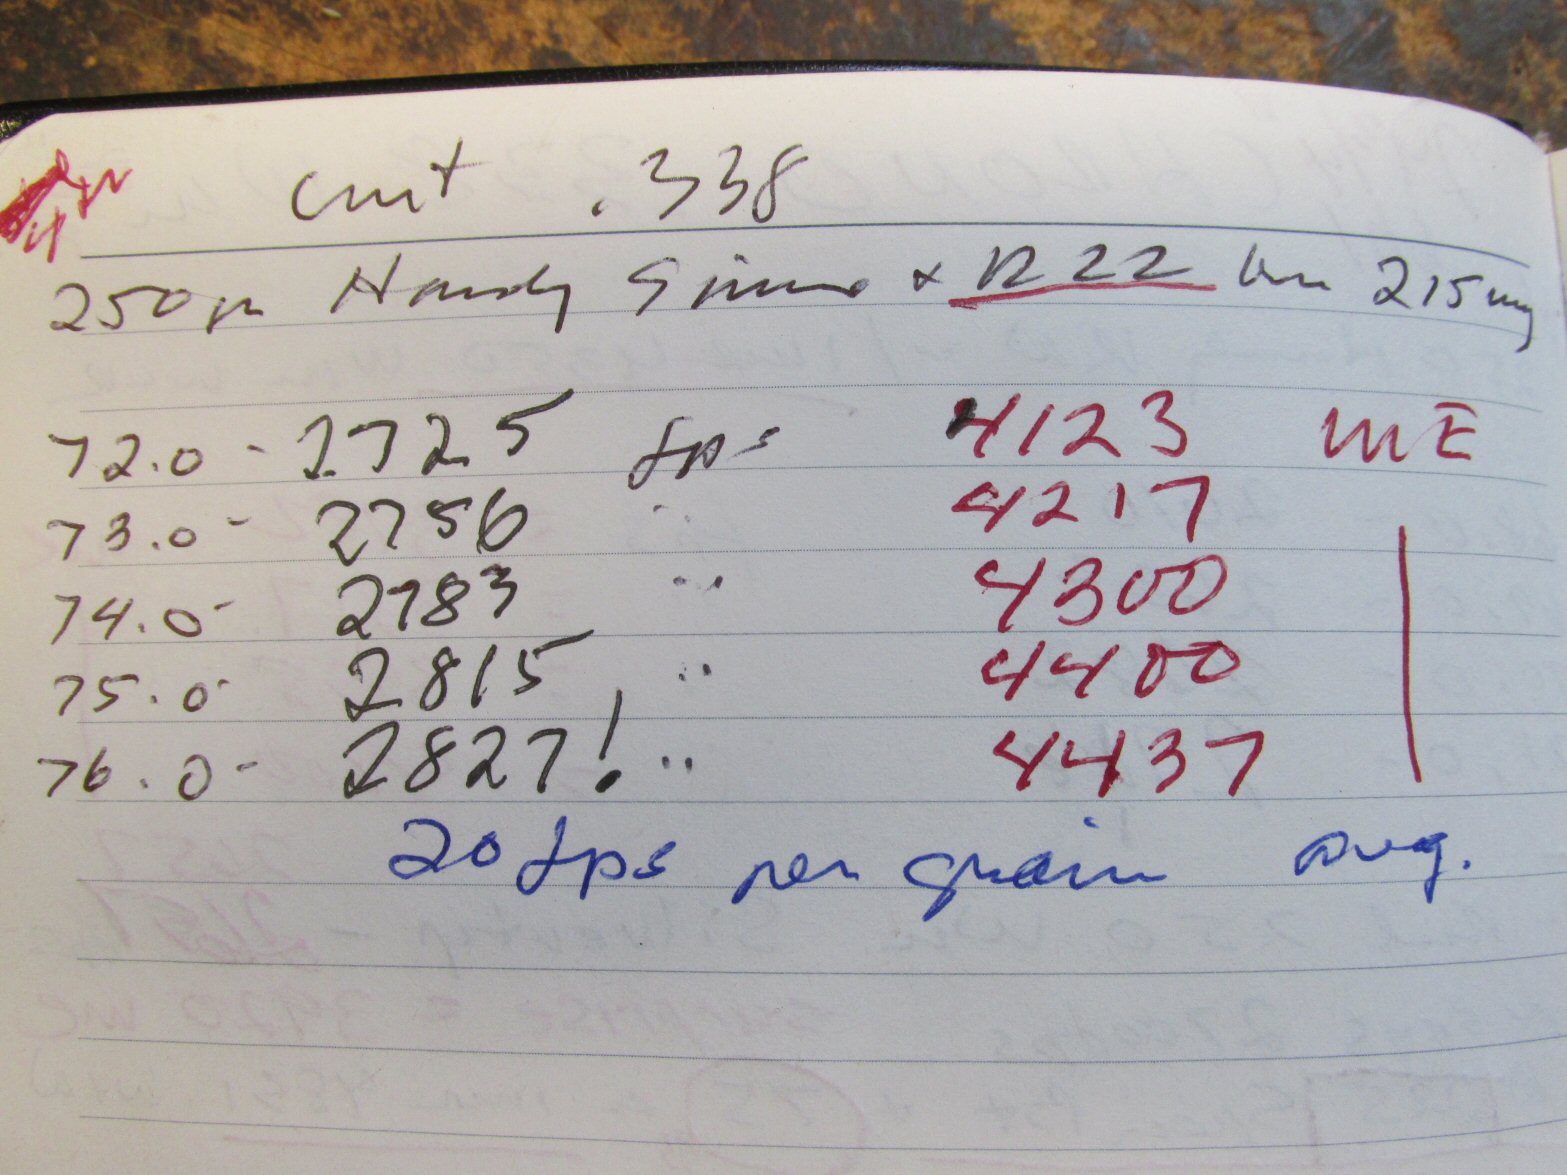 .338
250 gr Handy + R 22 215 mag
72.0 - 2725 fps 4123 ME
73.0 - 2756 " 4217
74.0 - 2783 " 4300
75.0 - 2815 " 4400
76.0 - 2827! " 4437
20 fps per grain avg.